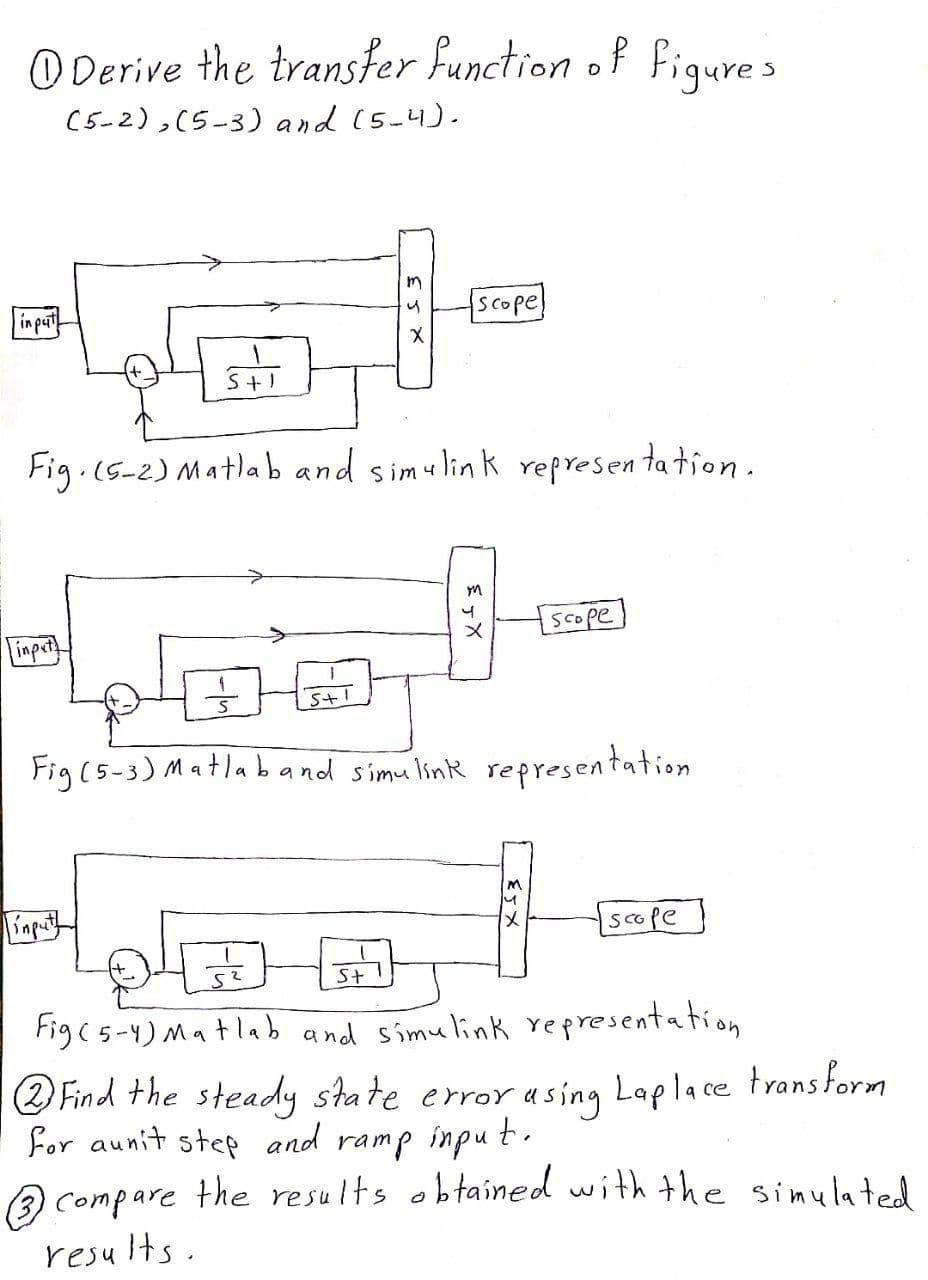 ① Derive the transfer function of figures
(5-2), (5-3) and (5-4).
input
+ -
1
S+1
mux
scope
Fig. (5-2) Matlab and simulink representation.
input
+ -
1
S
1
S+1
mux
scope
Fig (5-3) Matlab and simulink representation
input
+ -
1
S²
1
S+1
mux
scope
Fig (5-4) Matlab and simulink representation
② Find the steady state error using Laplace transform
for aunit step and ramp input.
③ compare the results obtained with the simulated
results.